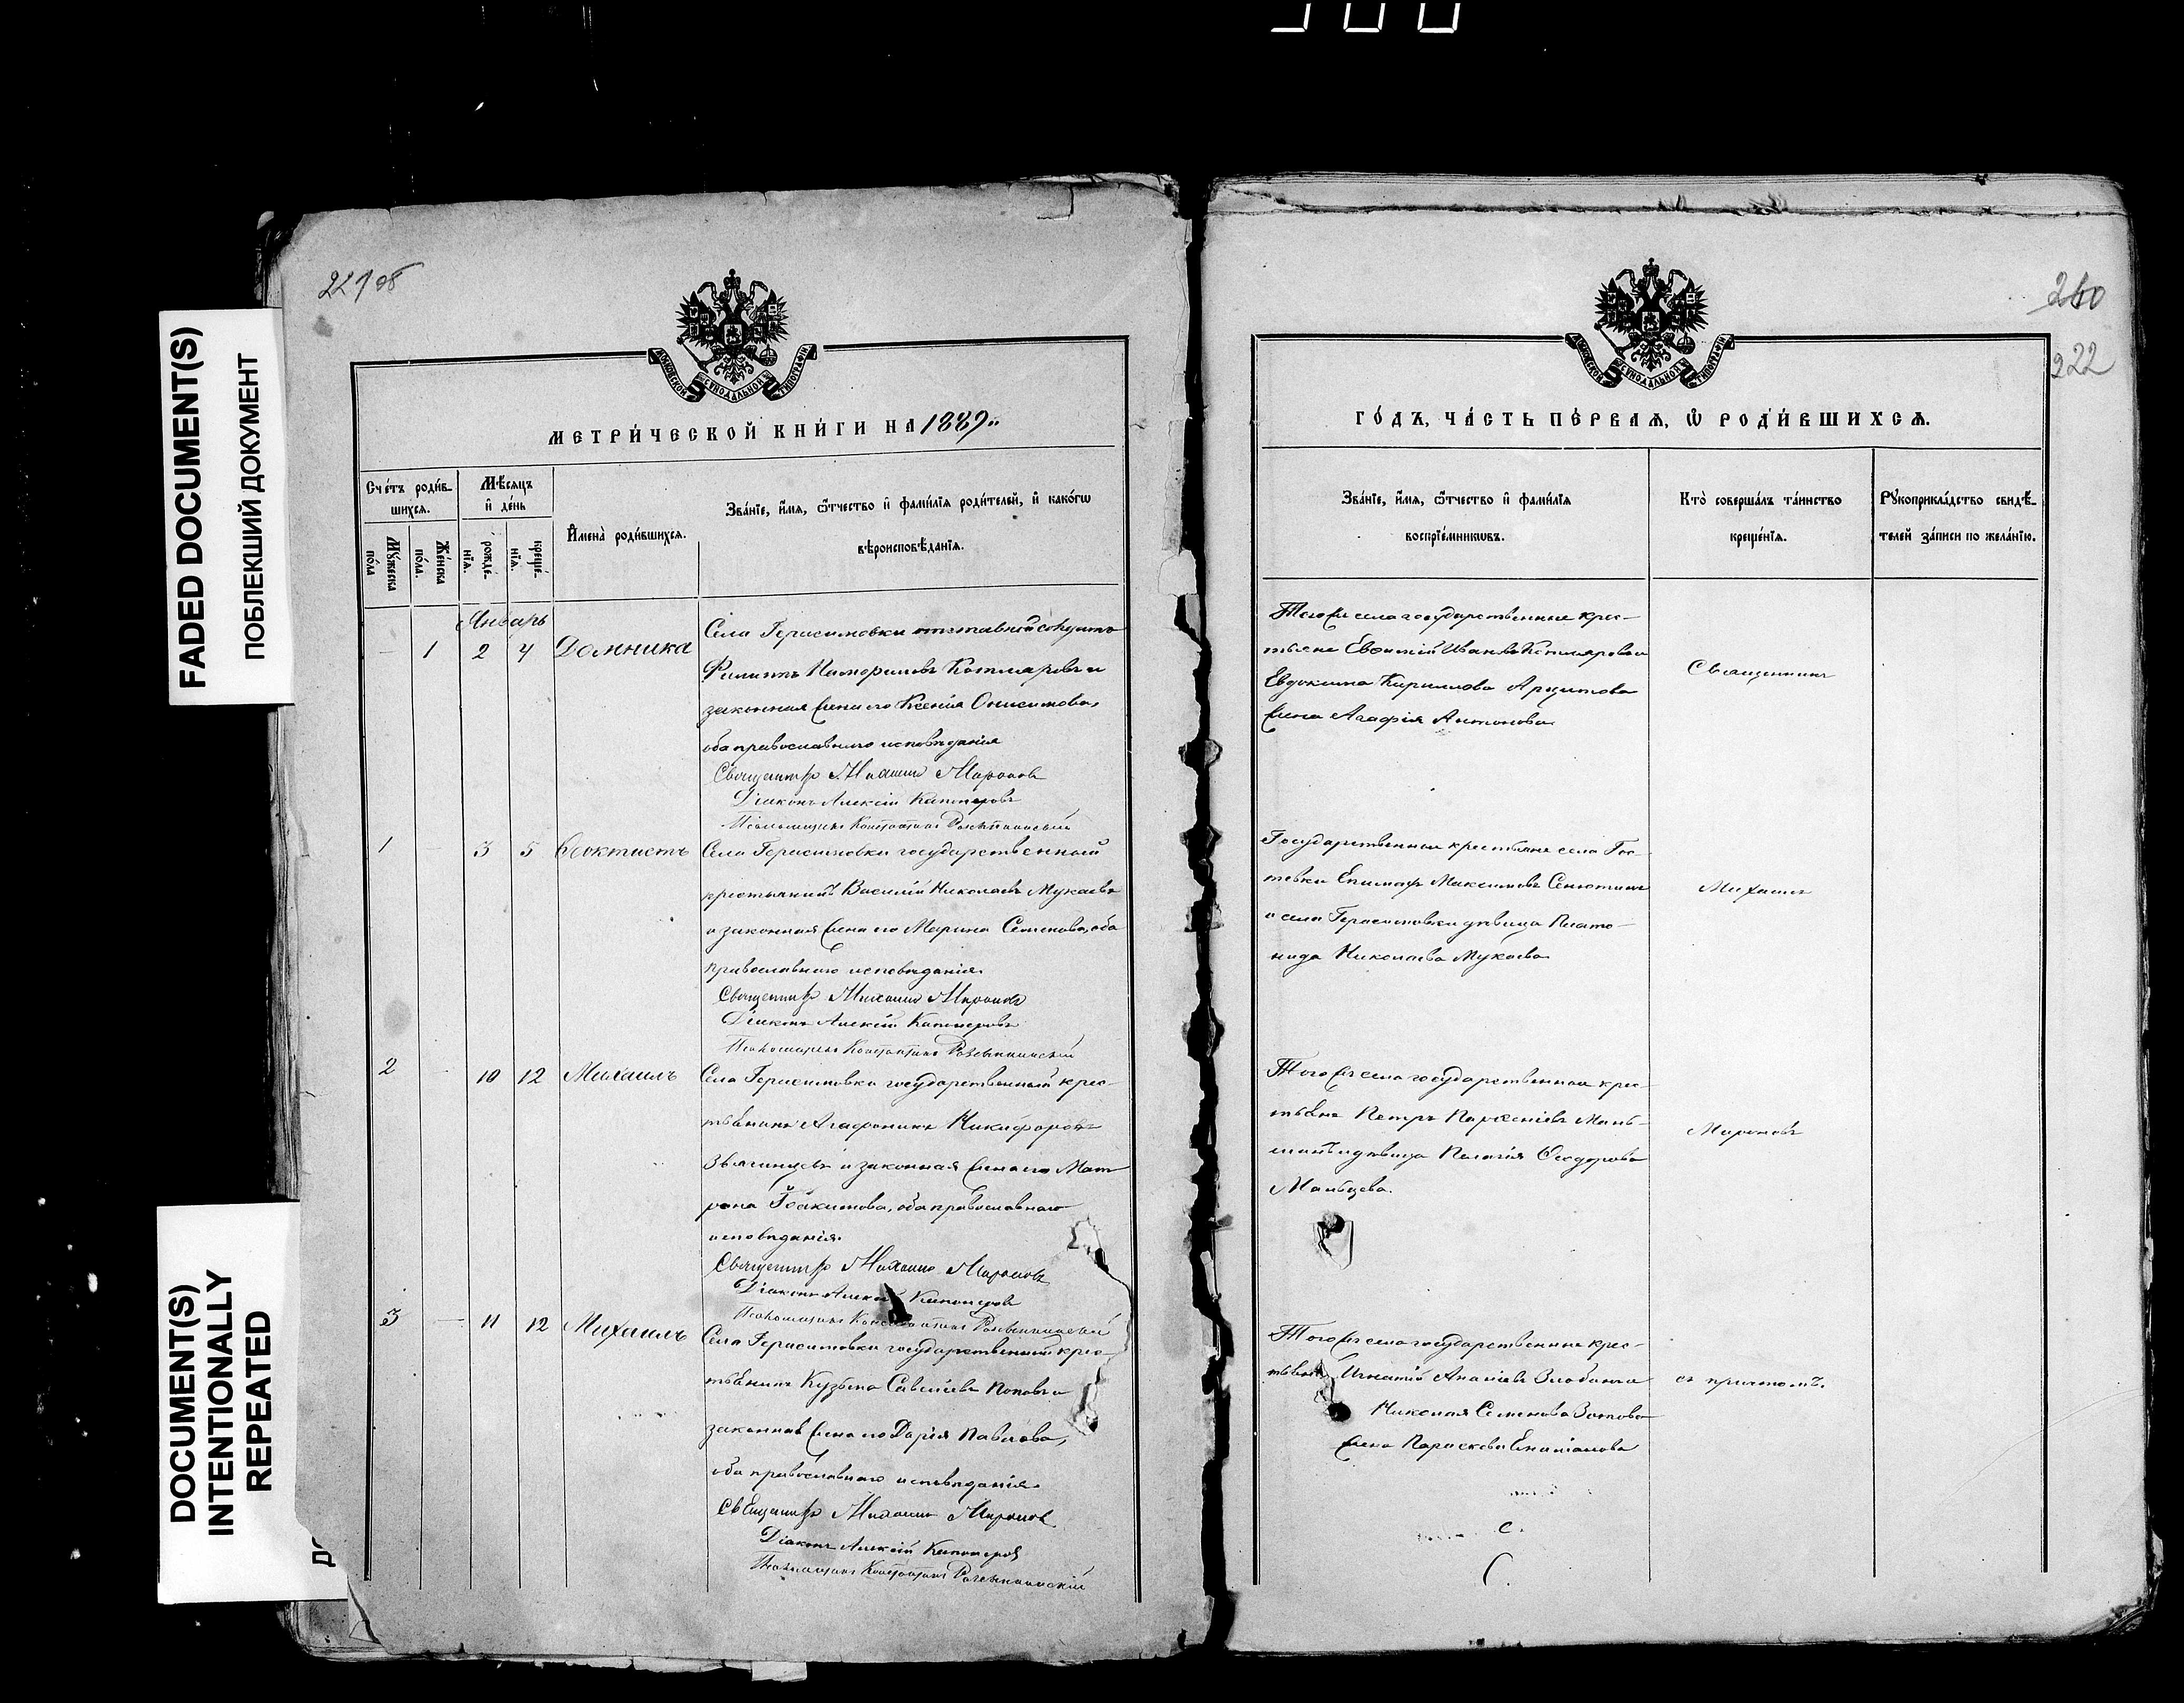 FADED DOCUMENT(S)
ПОБЛЕКШИЙ ДОКУМЕНТ
DOCUMENT(S)
INTENTIONALLY
REPEATED
221 об
МОСКОВСКОЙ СѴНОДАЛЬНОЙ ТИПОГРАФІИ
МЕТРИ́ЧЕСКОЙ КНИ́ГИ НА 1889
Сче́тъ роди́в-
шихсѧ.
Мꙋ́жеска
по́ла
Же́нска
по́ла.
Мѣ́сѧцъ
и҆ де́нь
рожде́-
нїѧ.
креще́-
нїѧ.
И҆мена̀ роди́вшихсѧ.
Зва́нїе, и҆́мѧ, ѻ҆́тчество и҆ фами́лїѧ роди́телей, и҆ како́гѡ
вѣроисповѣ́данїѧ.
Январь
1 2 4 Домника
Села Герасимовки отставной солдатъ
Филиппъ Никифоровъ Котляровъ и
законная жена его Ксенія Онисимова,
оба православнаго исповѣданія
Священникъ Михаилъ Мироновъ
Діаконъ Алексій
Псаломщикъ Константинъ
1 3 5 Ѳеоктистъ
Села Герасимовки государственный
крестьянинъ Василій Николаевъ Мукаевъ
и законная жена его Марина Семенова, оба
православнаго исповѣданія.
Священникъ Михаилъ Мироновъ
Діаконъ Алексій
Псаломщикъ Константинъ
2 10 12 Михаилъ
Села Герасимовки государственный крес-
тьянинъ Агафоникъ Никифоровъ
Звягинцевъ и законная жена его Мат-
рона Іоакимова, оба православнаго
исповѣданія.
Священникъ Михаилъ Мироновъ
Діаконъ Алексій
Псаломщикъ Константинъ
3 11 12 Михаилъ
Села Герасимовки государственный крес-
тьянинъ Кузьма Савельевъ Поповъ и
законная жена его Дарія Павлова,
оба православнаго исповѣданія.
Священникъ Михаилъ Мироновъ
Діаконъ Алексій
Псаломщикъ Константинъ
240
222
МОСКОВСКОЙ СѴНОДАЛЬНОЙ ТИПОГРАФІИ
ГО́ДЪ, ЧА́СТЬ ПЕ́РВАѦ, Ѡ҆ РОДИ́ВШИХСѦ.
Зва́нїе, и҆́мѧ, ѻ҆́тчество и҆ фами́лїѧ
воспрїе́мникѡвъ.
Кто̀ соверша́лъ та́инство
креще́нїѧ.
Рꙋкоприкла́дство свидѣ́-
телей за́писи по жела́нїю.
Того же села государственные крес-
тьяне Евфимій Ивановъ Котляровъ и
Евдокима Кириллова
жена Агафія Антонова.
Священникъ
Государственные крестьяне села
Епимахъ Максимовъ Сенютинъ
и села Герасимовки дѣвица Плато-
нида Николаева Мукаева.
Михаилъ
Того же села государственные крес-
тьяне Петръ Парѳеніевъ
и дѣвица Пелагія Ѳеодорова
Мальцева.
Мироновъ
Того же села государственные крес-
тьяне Игнатій Ананіевъ Злобинъ и
Николая Семенова Зотова
жена Параскева
съ причтомъ.